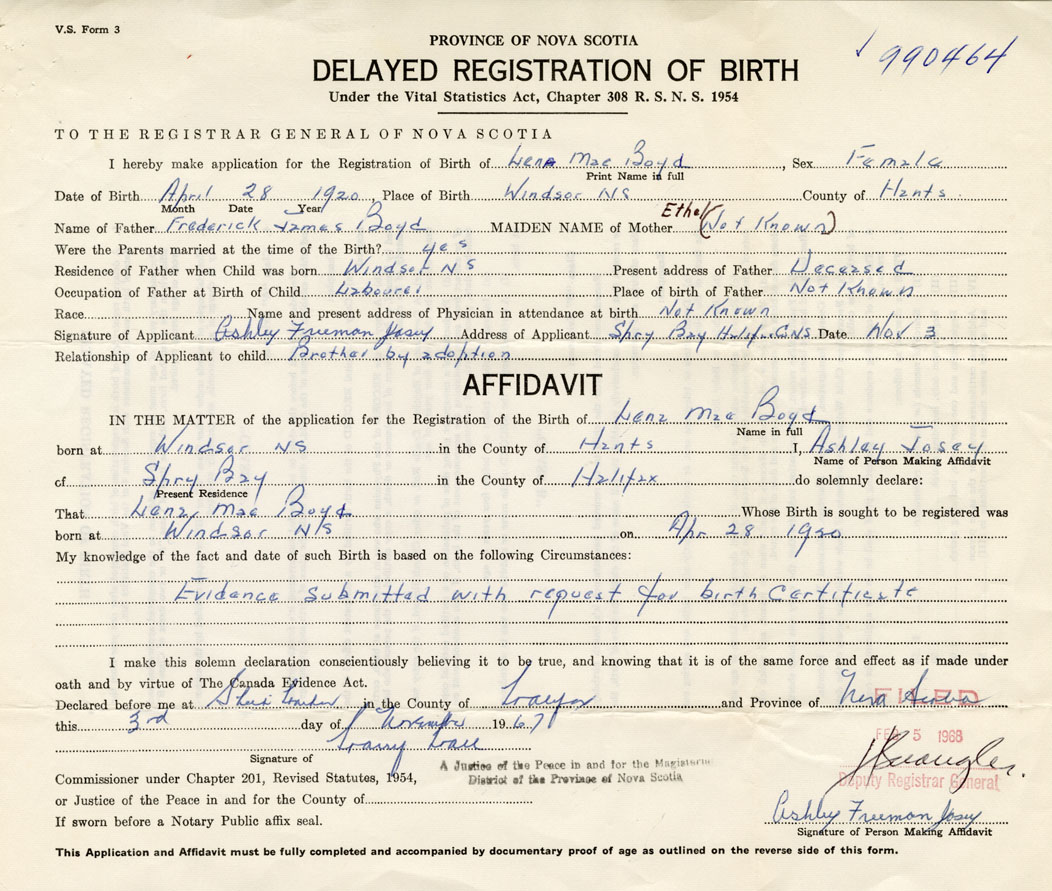 V.S. Form 3
PROVINCE OF NOVA SCOTIA
990464
DELAYED REGISTRATION OF BIRTH
Under the Vital Statistics Act, Chapter 308 R. S. N. S. 1954
TO THE REGISTRAR GENERAL OF NOVA SCOTIA
I hereby make application for the Registration of Birth of Lena Mae Boyd, Sex Female
Print Name in full
Date of Birth April 28 1920 Place of Birth Windsor NS County of Hants
Month Date Year
Name of Father Frederick James Boyd MAIDEN NAME of Mother Ethel (Not Known)
Were the Parents married at the time of the Birth? yes
Residence of Father when Child was born Windsor NS Present address of Father Deceased
Occupation of Father at Birth of Child Labourer Place of birth of Father Not Known
Race Name and present address of Physician in attendance at birth Not Known
Signature of Applicant Ashley Freeman Josey Address of Applicant Spry Bay Halifx.C.NS Date Nov 3
Relationship of Applicant to child Brother by adoption
AFFIDAVIT
IN THE MATTER of the application for the Registration of the Birth of Lena Mae Boyd
Name in full
born at Windsor NS in the County of Hants I, Ashley Josey
Name of Person Making Affidavit
of Spry Bay in the County of Halifax do solemnly declare:
Present Residence
That Lena Mae Boyd Whose Birth is sought to be registered was
born at Windsor NS on Apr 28 1920
My knowledge of the fact and date of such Birth is based on the following Circumstances:
Evidence submitted with request for birth Certificate
I make this solemn declaration conscientiously believing it to be true, and knowing that it is of the same force and effect as if made under
oath and by virtue of The Canada Evidence Act.
Declared before me at in the County of Halifax and Province of Nova Scotia
FILED
this 3rd day of November 1967
FEB 5 1968
Signature of
A Justice of the Peace in and for the Magisterial
District of the Province of Nova Scotia
Commissioner under Chapter 201, Revised Statutes, 1954,
Deputy Registrar General
or Justice of the Peace in and for the County of
Ashley Freeman Josey
If sworn before a Notary Public affix seal.
Signature of Person Making Affidavit
This Application and Affidavit must be fully completed and accompanied by documentary proof of age as outlined on the reverse side of this form.